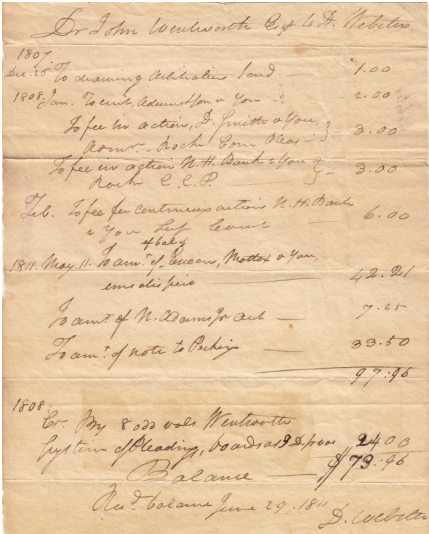 Dr John Wentworth Esq to D. Webster.
1807
Dec. 25 To drawing Arbitration — 1.00
1808 Jan. To writ, Adams & You — 2.00
To fee in action, Smith & You, } 3.00
Rock. Com Pleas
To fee in action N.H. Bank & You } 3.00
Rock C.C.P.
Feb. To fee for continuing action N.H. Bank 6.00
& You Sup Court
1811. May. 11. To amt of & You 42.21
To amt of N. Adams — 7.25
To amt of note to — 33.50
97.96
1808
Cr. By 8 odd vols Wentworth
System of Pleading, boards 24.00
Balance — $73.96
Recd balance June 29. 1811
D. Webster